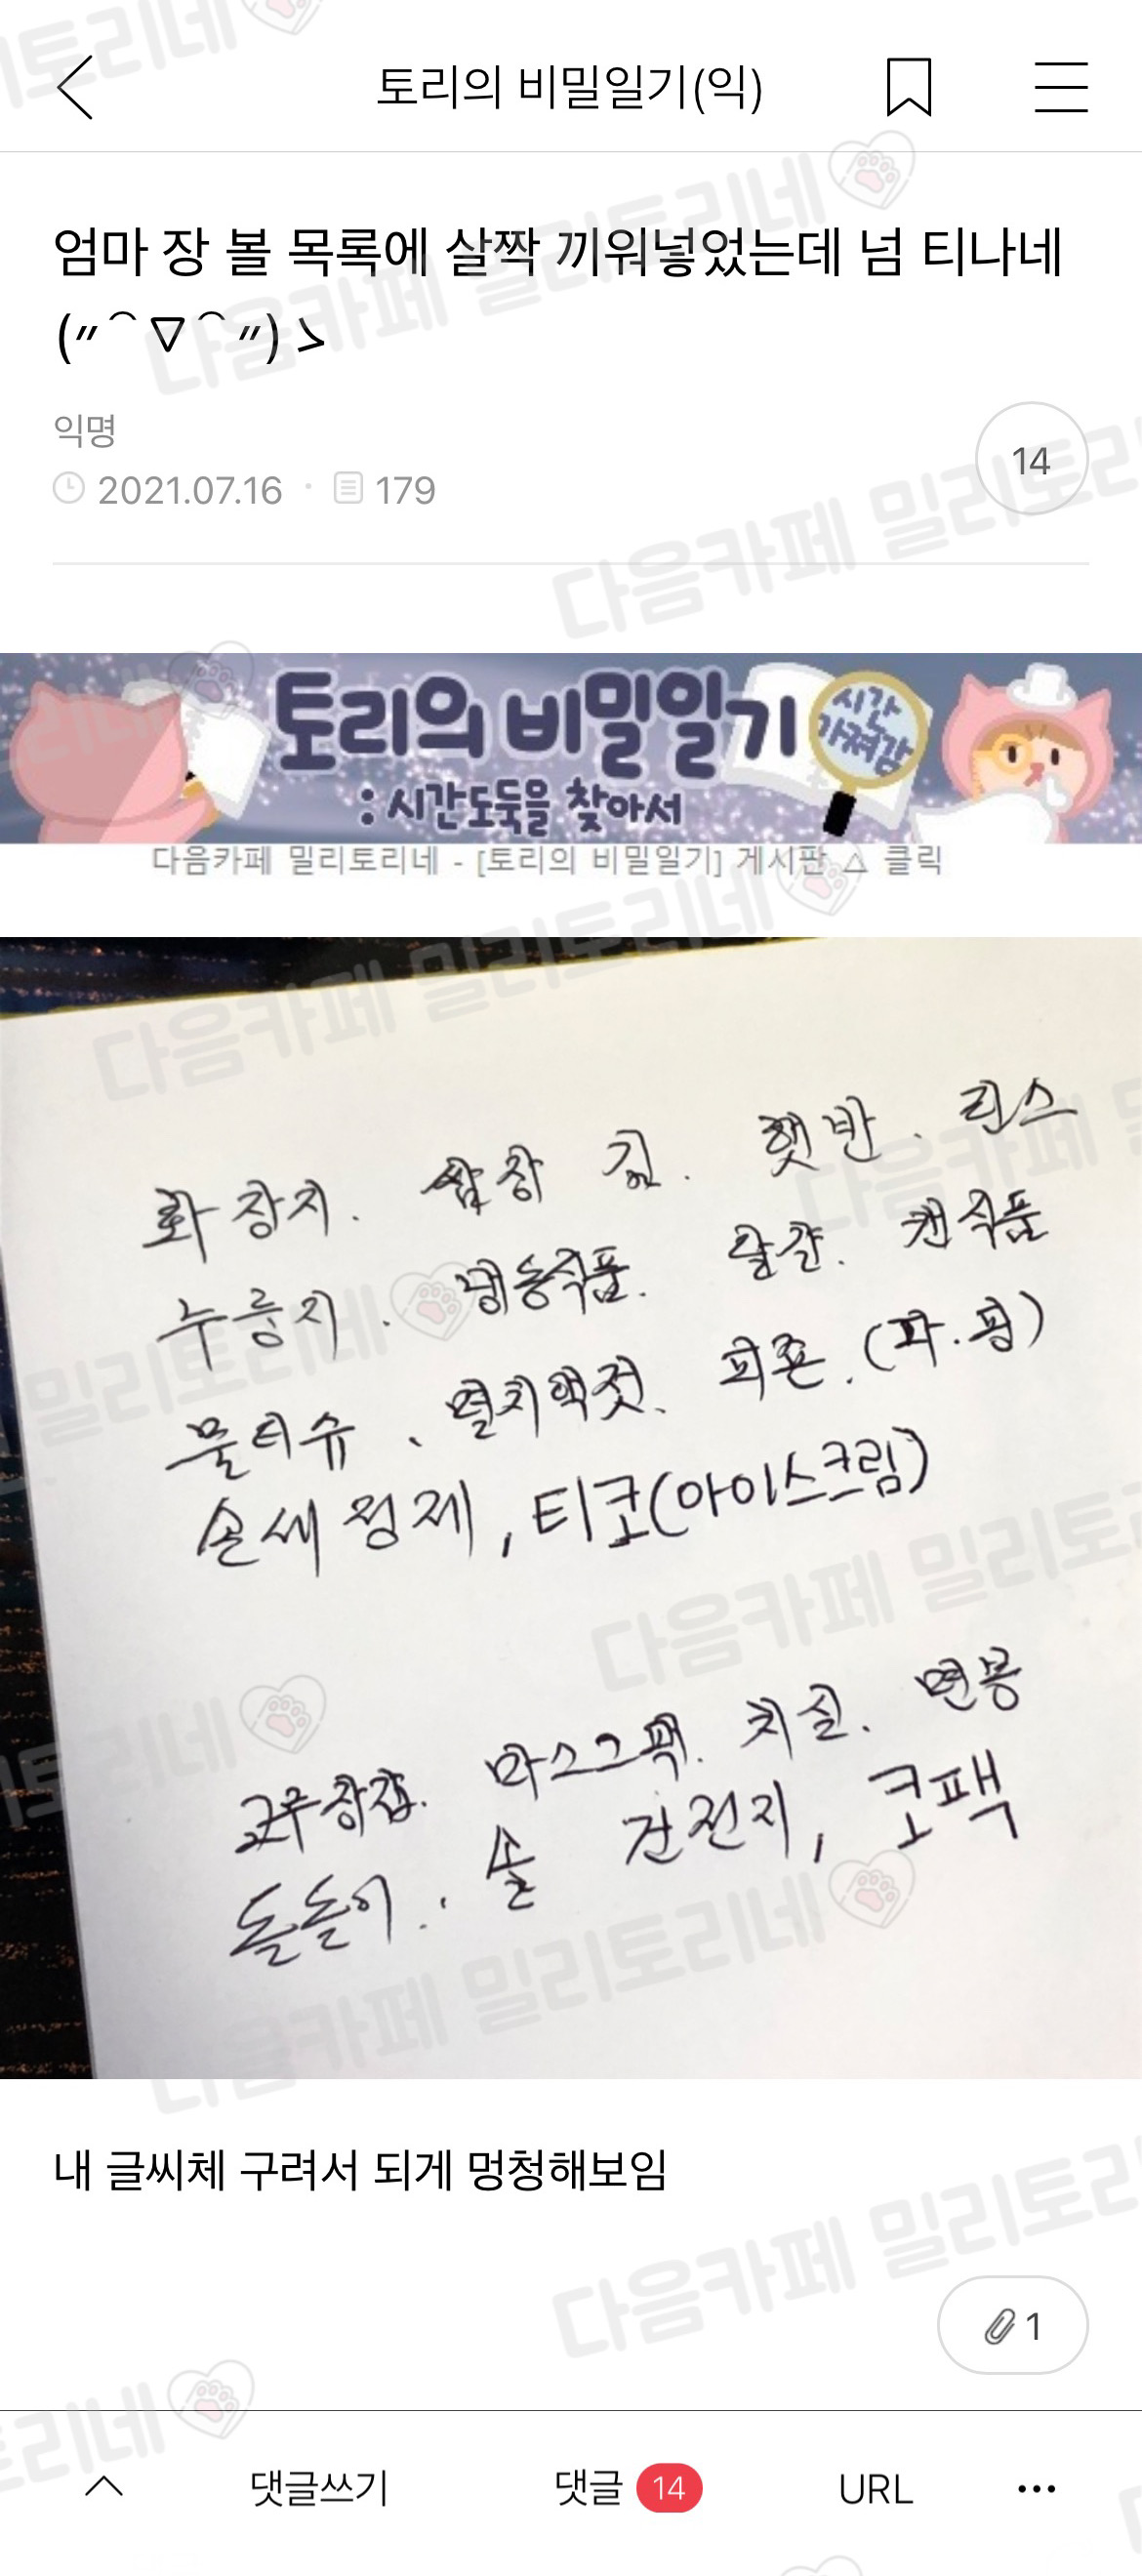 토리의 비밀일기(익)
엄마 장 볼 목록에 살짝 끼워넣었는데 넘 티나네
(〃⌒▽⌒〃)ゝ
익명
14
2021.07.16 · 179
토리의 비밀일기
시간
가져감
: 시간도둑을 찾아서
다음카페 밀리토리네 - [토리의 비밀일기] 게시판 △ 클릭
화장지. 쌈장 김. 햇반. 린스
누룽지. 냉동식품. 달걀. 캔식품
물티슈. 멸치액젓. 피죤. (파.핑)
손세정제, 티코(아이스크림)
고무장갑. 마스크팩. 치실. 면봉
돌돌이. 솔 건전지, 코팩
내 글씨체 구려서 되게 멍청해보임
1
댓글쓰기 댓글 14 URL
다음카페 밀리토리네